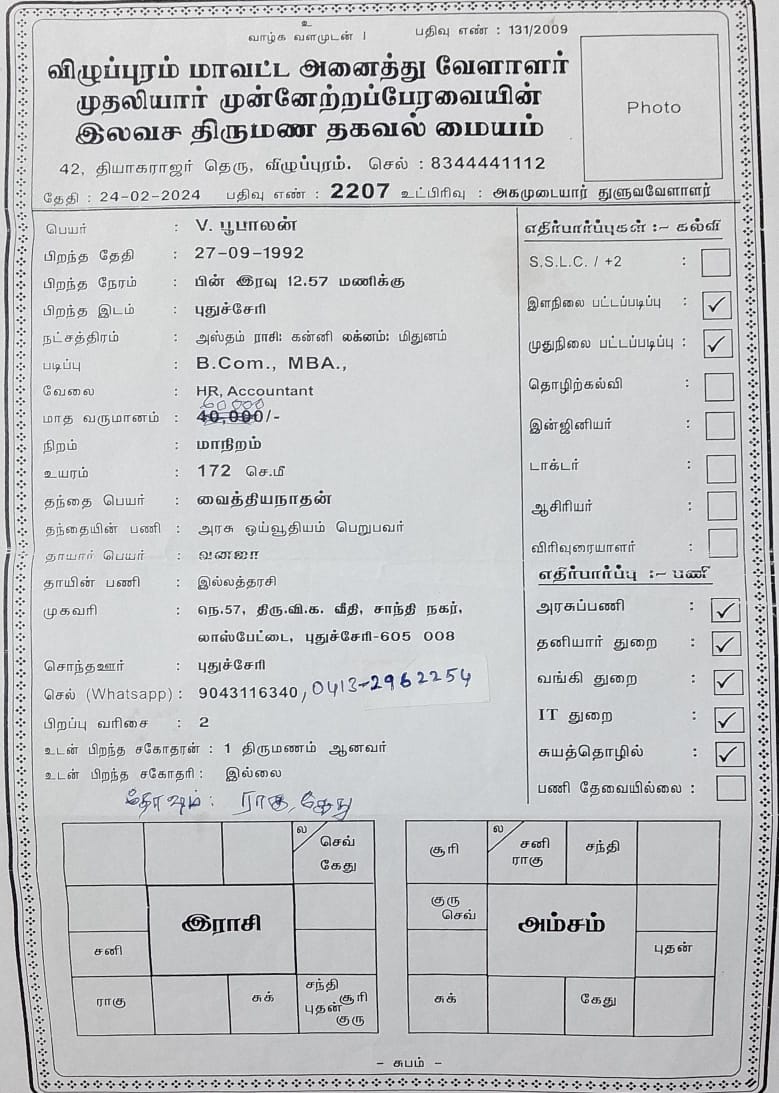 உ
வாழ்க வளமுடன் ।
பதிவு எண் : 131/2009
விழுப்புரம் மாவட்ட அனைத்து வேளாளர்
முதலியார் முன்னேற்றப்பேரவையின்
இலவச திருமண தகவல் மையம்
Photo
42, தியாகராஜர் தெரு, விழுப்புரம். செல் : 8344441112
தேதி : 24-02-2024 பதிவு எண் : 2207 உட்பிரிவு : அகமுடையார் துளுவவேளாளர்
பெயர் : V. பூபாலன்
பிறந்த தேதி : 27-09-1992
பிறந்த நேரம் : பின் இரவு 12.57 மணிக்கு
பிறந்த இடம் : புதுச்சேரி
நட்சத்திரம் : அஸ்தம் ராசி: கன்னி லக்னம்: மிதுனம்
படிப்பு : B.Com., MBA.,
வேலை : HR, Accountant
60000
மாத வருமானம் : 40,000/-
நிறம் : மாநிறம்
உயரம் : 172 செ.மீ
தந்தை பெயர் : வைத்தியநாதன்
தந்தையின் பணி : அரசு ஒய்வூதியம் பெறுபவர்
தாயார் பெயர் : வனஜா
தாயின் பணி : இல்லத்தரசி
முகவரி : நெ.57, திரு.வி.க. வீதி, சாந்தி நகர்,
லாஸ்பேட்டை, புதுச்சேரி-605 008
சொந்தஊர் : புதுச்சேரி
செல் (Whatsapp) : 9043116340, 0413-2962254
பிறப்பு வரிசை : 2
உடன் பிறந்த சகோதரன் : 1 திருமணம் ஆனவர்
உடன் பிறந்த சகோதரி : இல்லை
தோஷம் : ராகு, கேது
எதிர்பார்ப்புகள் :- கல்வி
S.S.L.C. / +2 :
இளநிலை பட்டப்படிப்பு : ✓
முதுநிலை பட்டப்படிப்பு : ✓
தொழிற்கல்வி :
இன்ஜினியர் :
டாக்டர் :
ஆசிரியர் :
விரிவுரையாளர் :
எதிர்பார்ப்பு :- பணி
அரசுப்பணி : ✓
தனியார் துறை : ✓
வங்கி துறை : ✓
IT துறை : ✓
சுயத்தொழில் : ✓
பணி தேவையில்லை :
ல
செவ்
கேது
இராசி
சனி
ராகு
சுக்
சந்தி
சூரி
புதன்
குரு
சூரி
ல
சனி
ராகு
சந்தி
குரு
செவ்
அம்சம்
புதன்
சுக்
கேது
- சுபம் -